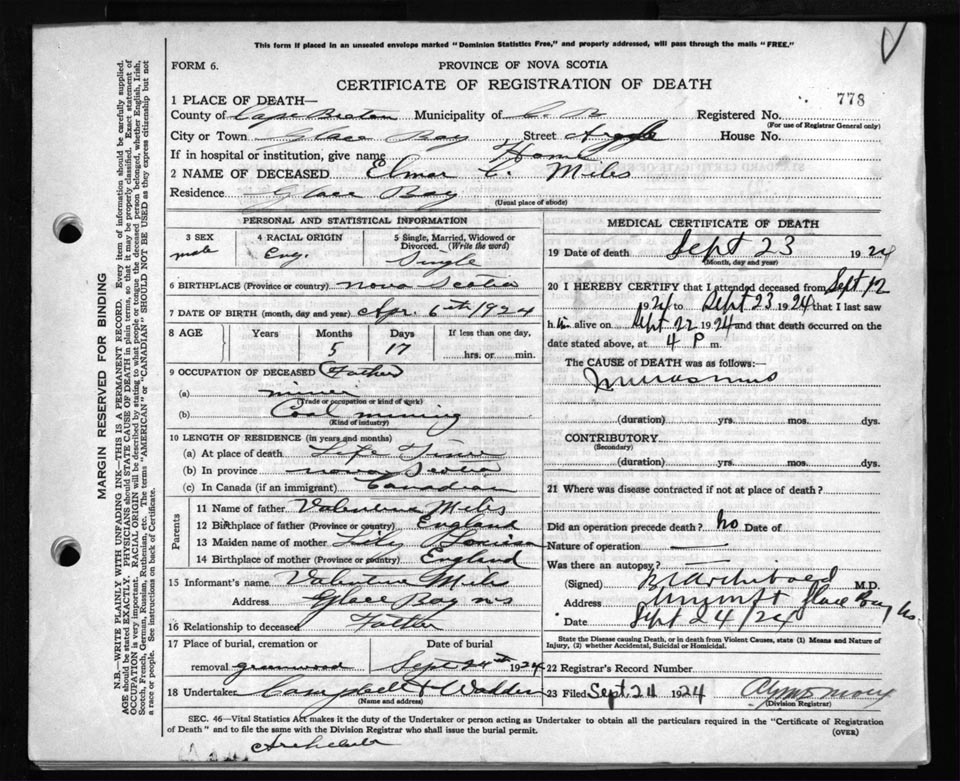 This form if placed in an unsealed envelope marked "Dominion Statistics Free," and properly addressed, will pass through the mails "FREE."
FORM 6.
PROVINCE OF NOVA SCOTIA
CERTIFICATE OF REGISTRATION OF DEATH
778
1 PLACE OF DEATH—
County of Cape Breton Municipality of C. B. Registered No.
(For use of Registrar General only)
City or Town Glace Bay Street Argyle House No.
If in hospital or institution, give name Home
2 NAME OF DECEASED Elmar C. Miles
Residence Glace Bay
(Usual place of abode)
PERSONAL AND STATISTICAL INFORMATION
3 SEX male
4 RACIAL ORIGIN Eng.
5 Single, Married, Widowed or Divorced. (Write the word) Single
6 BIRTHPLACE (Province or country) Nova Scotia
7 DATE OF BIRTH (month, day and year) Apr. 6th 1924
8 AGE Years Months Days If less than one day,
5 17 hrs. or min.
9 OCCUPATION OF DECEASED Father
(a) miner
(Trade or occupation or kind of work)
(b) Coal mining
(Kind of industry)
10 LENGTH OF RESIDENCE (in years and months)
(a) At place of death Life Time
(b) In province Nova Scotia
(c) In Canada (if an immigrant) Canadian
Parents
11 Name of father Valentine Miles
12 Birthplace of father (Province or country) England
13 Maiden name of mother Lily Louisa
14 Birthplace of mother (Province or country) England
15 Informant's name Valentine Miles
Address Glace Bay NS
16 Relationship to deceased Father
17 Place of burial, cremation or Date of burial
removal greenwood Sept 24th 1924
18 Undertaker Campbell & Walden
(Name and address)
MEDICAL CERTIFICATE OF DEATH
19 Date of death Sept 23 1924
(Month, day and year)
20 I HEREBY CERTIFY that I attended deceased from Sept 12
1924 to Sept 23 1924 that I last saw
h im alive on Sept 22 1924 and that death occurred on the
date stated above, at 4 P m.
The CAUSE OF DEATH was as follows:—
Marasmus
(duration) yrs. mos. dys.
CONTRIBUTORY
(Secondary)
(duration) yrs. mos. dys.
21 Where was disease contracted if not at place of death?
Did an operation precede death? No Date of
Nature of operation
Was there an autopsy?
(Signed) Archibald M.D.
Address Glace Bay
Date Sept 24/24
State the Disease causing Death, or in death from Violent Causes, state (1) Means and Nature of
Injury, (2) whether Accidental, Suicidal or Homicidal.
22 Registrar's Record Number
23 Filed Sept 24 1924
(Division Registrar)
SEC. 46—Vital Statistics Act makes it the duty of the Undertaker or person acting as Undertaker to obtain all the particulars required in the "Certificate of Registration
of Death" and to file the same with the Division Registrar who shall issue the burial permit.
(OVER)
MARGIN RESERVED FOR BINDING
N.B.—WRITE PLAINLY WITH UNFADING INK—THIS IS A PERMANENT RECORD. Every item of information should be carefully supplied.
AGE should be stated EXACTLY. PHYSICIANS should STATE CAUSE OF DEATH in plain terms, so that it may be properly classified. Exact statement of
OCCUPATION is very important. RACIAL ORIGIN will be described by stating to what people or tongue the deceased person belonged, whether English, Irish,
Scotch, French, German, Russian, Ruthenian, etc. The terms "AMERICAN" or "CANADIAN" SHOULD NOT BE USED as they express citizenship but not
a race or people. See instructions on back of Certificate.